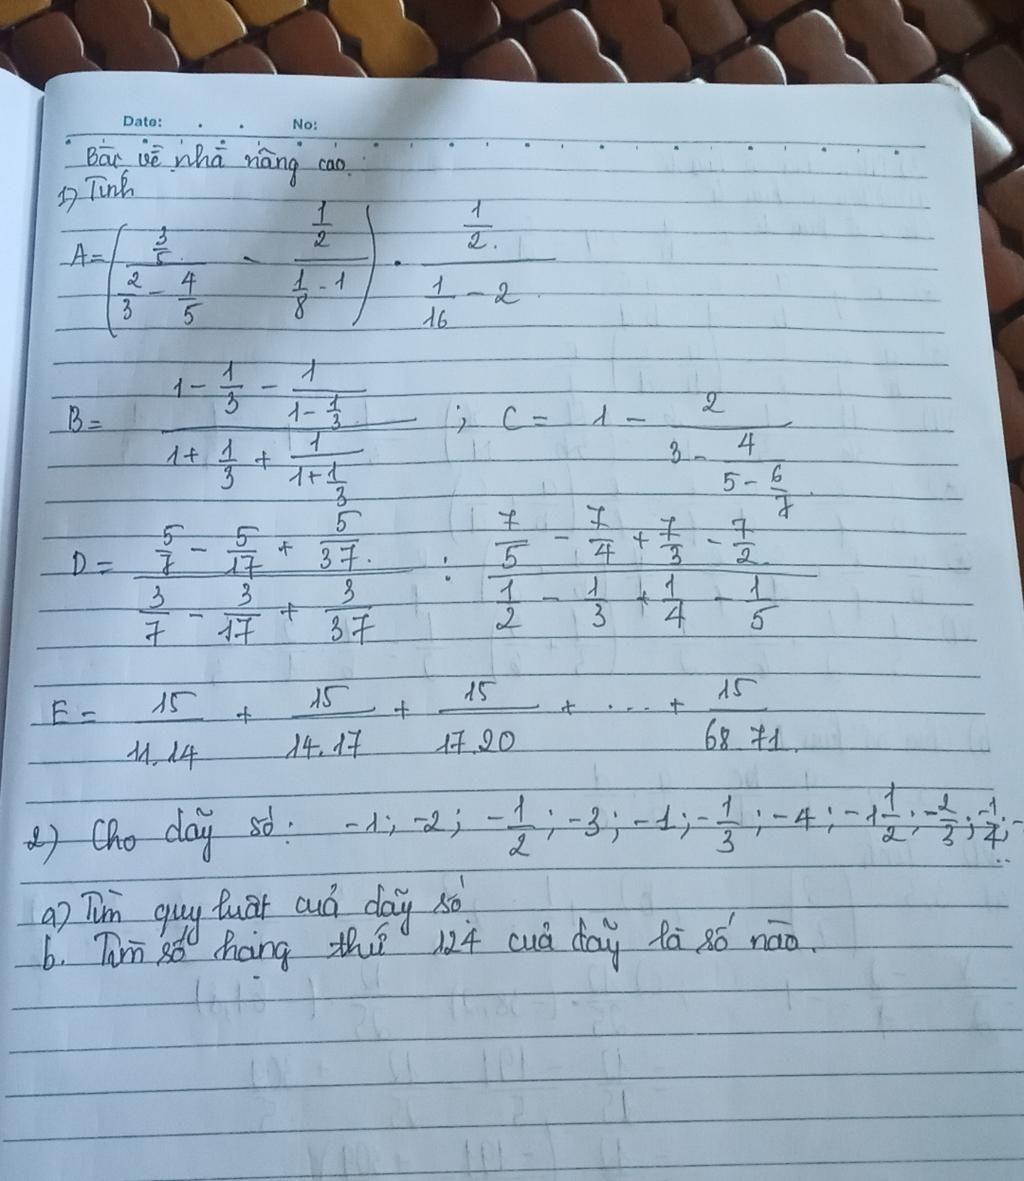 Date: . . No:
Bài về nhà nâng cao.
1) Tính
A = ( (3/5)/(2/3 - 4/5) - (1/2)/(1/8 - 1) ) . (1/2)/(1/16 - 2)
B = (1 - 1/3 - 1/(1 - 1/3))/(1 + 1/3 + 1/(1 + 1/3)) ; C = 1 - 2/(3 - 4/(5 - 6/7))
D = (5/7 - 5/17 + 5/37)/(3/7 - 3/17 + 3/37) : (7/5 - 7/4 + 7/3 - 7/2)/(1/2 - 1/3 + 1/4 - 1/5)
E = 15/11.14 + 15/14.17 + 15/17.20 + ... + 15/68.71
2) Cho dãy số: -1; -2; -1/2; -3; -1; -1/3; -4; -1 1/2; -2/3; -1/4; -..
a) Tìm quy luật cuả dãy số
b. Tìm số hạng thứ 124 cuả dãy là số nào.